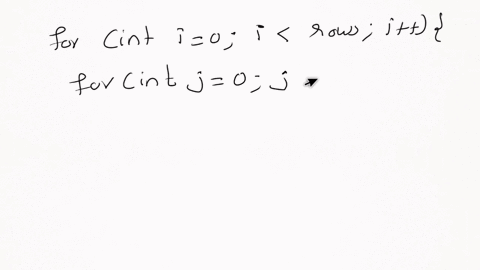 for (int i=0; i < row; i++){
for(int j=0; j